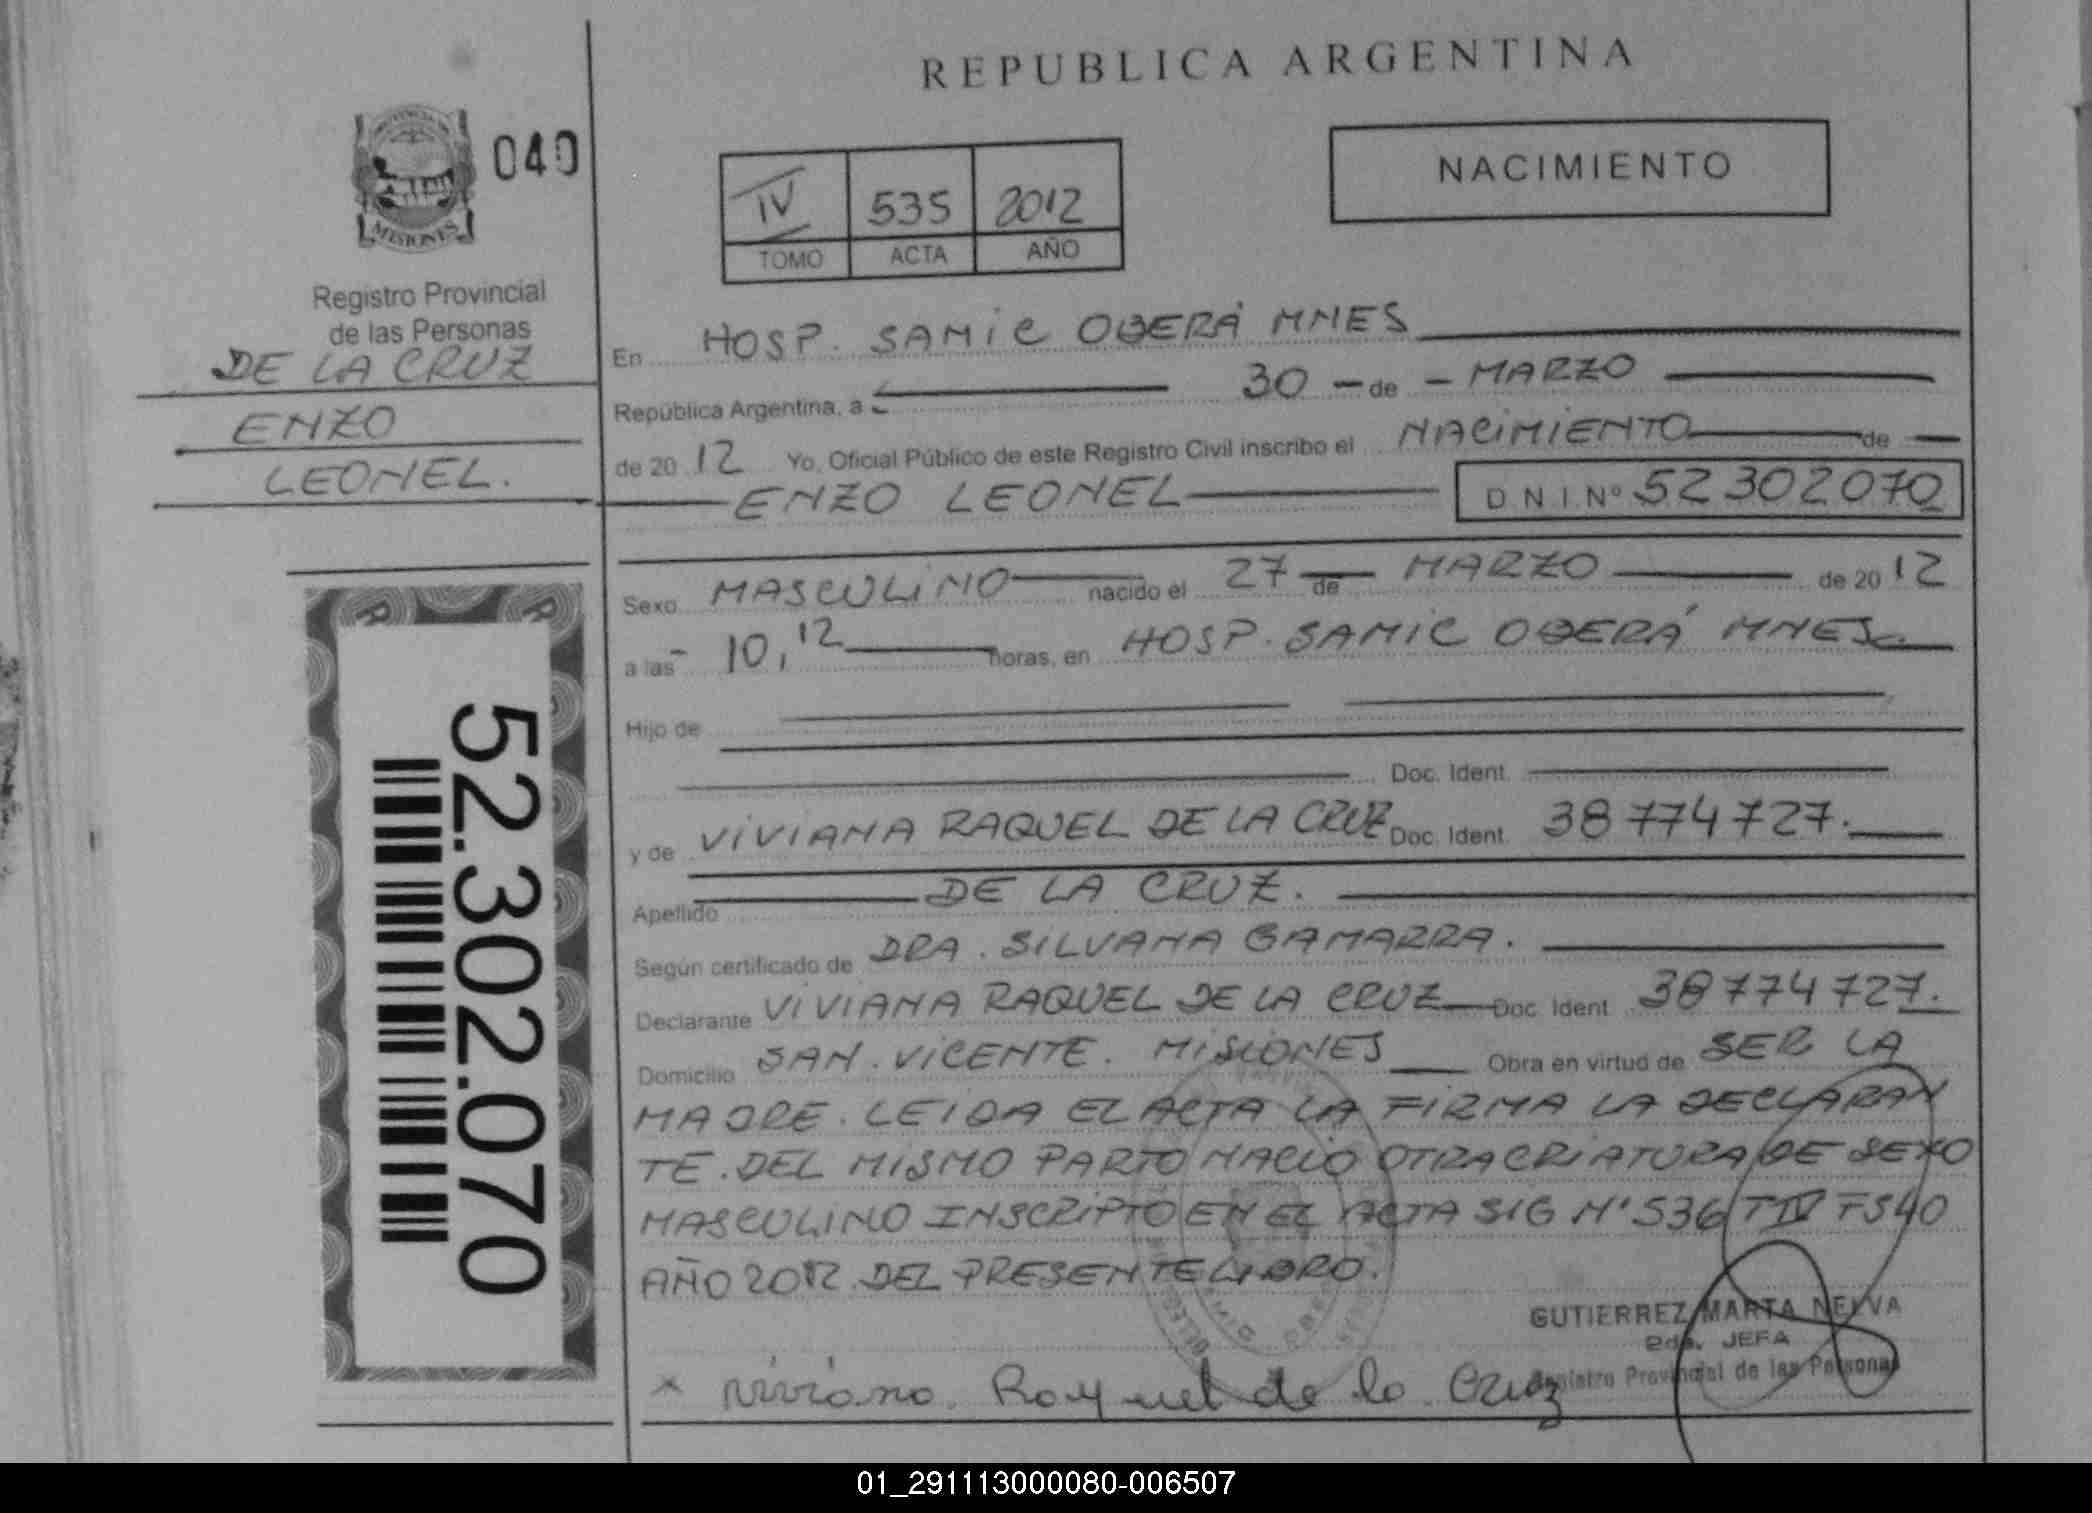 REPUBLICA ARGENTINA
040
NACIMIENTO
IV 535 2012
TOMO ACTA AÑO
MISIONES
Registro Provincial
de las Personas
DE LA CRUZ
ENZO
LEONEL.
En HOSP. SAMIC OBERÁ MNES
República Argentina, a 30 - de - MARZO
de 20 12 Yo, Oficial Público de este Registro Civil inscribo el NACIMIENTO de
ENZO LEONEL D N I Nº 52302070
Sexo MASCULINO nacido el 27 de MARZO de 20 12
a las 10,12 horas, en HOSP. SAMIC OBERÁ MNES
Hijo de
Doc. Ident.
y de VIVIANA RAQUEL DE LA CRUZ Doc. Ident. 38774727.
Apellido DE LA CRUZ.
Según certificado de DRA. SILVANA GAMARRA.
Declarante VIVIANA RAQUEL DE LA CRUZ Doc. Ident. 38774727.
Domicilio SAN. VICENTE. MISIONES Obra en virtud de SER LA
MADRE. LEIDA EL ACTA LA FIRMA LA DECLARAN
TE. DEL MISMO PARTO NACIO OTRA CRIATURA DE SEXO
MASCULINO INSCRIPTO EN EL ACTA SIG Nº 536 T IV FS 40
AÑO 2012 DEL PRESENTE LIBRO.
GUTIERREZ MARTA NELVA
2da. JEFA
Registro Provincial de las Personas
x Viviana Raquel de la Cruz
52.302.070
01_291113000080-006507